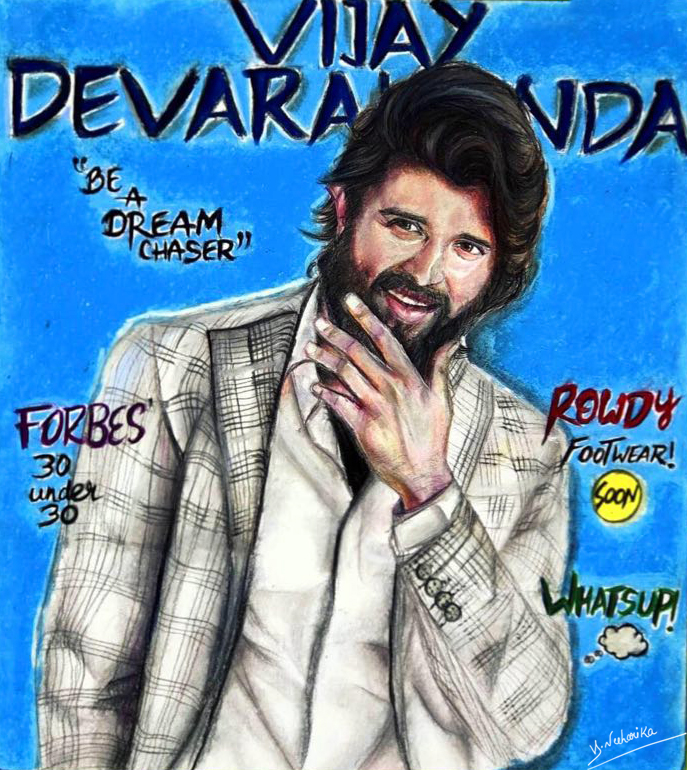 VIJAY
DEVARA NDA
"BE
A
DREAM
CHASER"
FORBES'
30
under
30
ROWDY
FOOTWEAR!
SOON
WHATSUP!